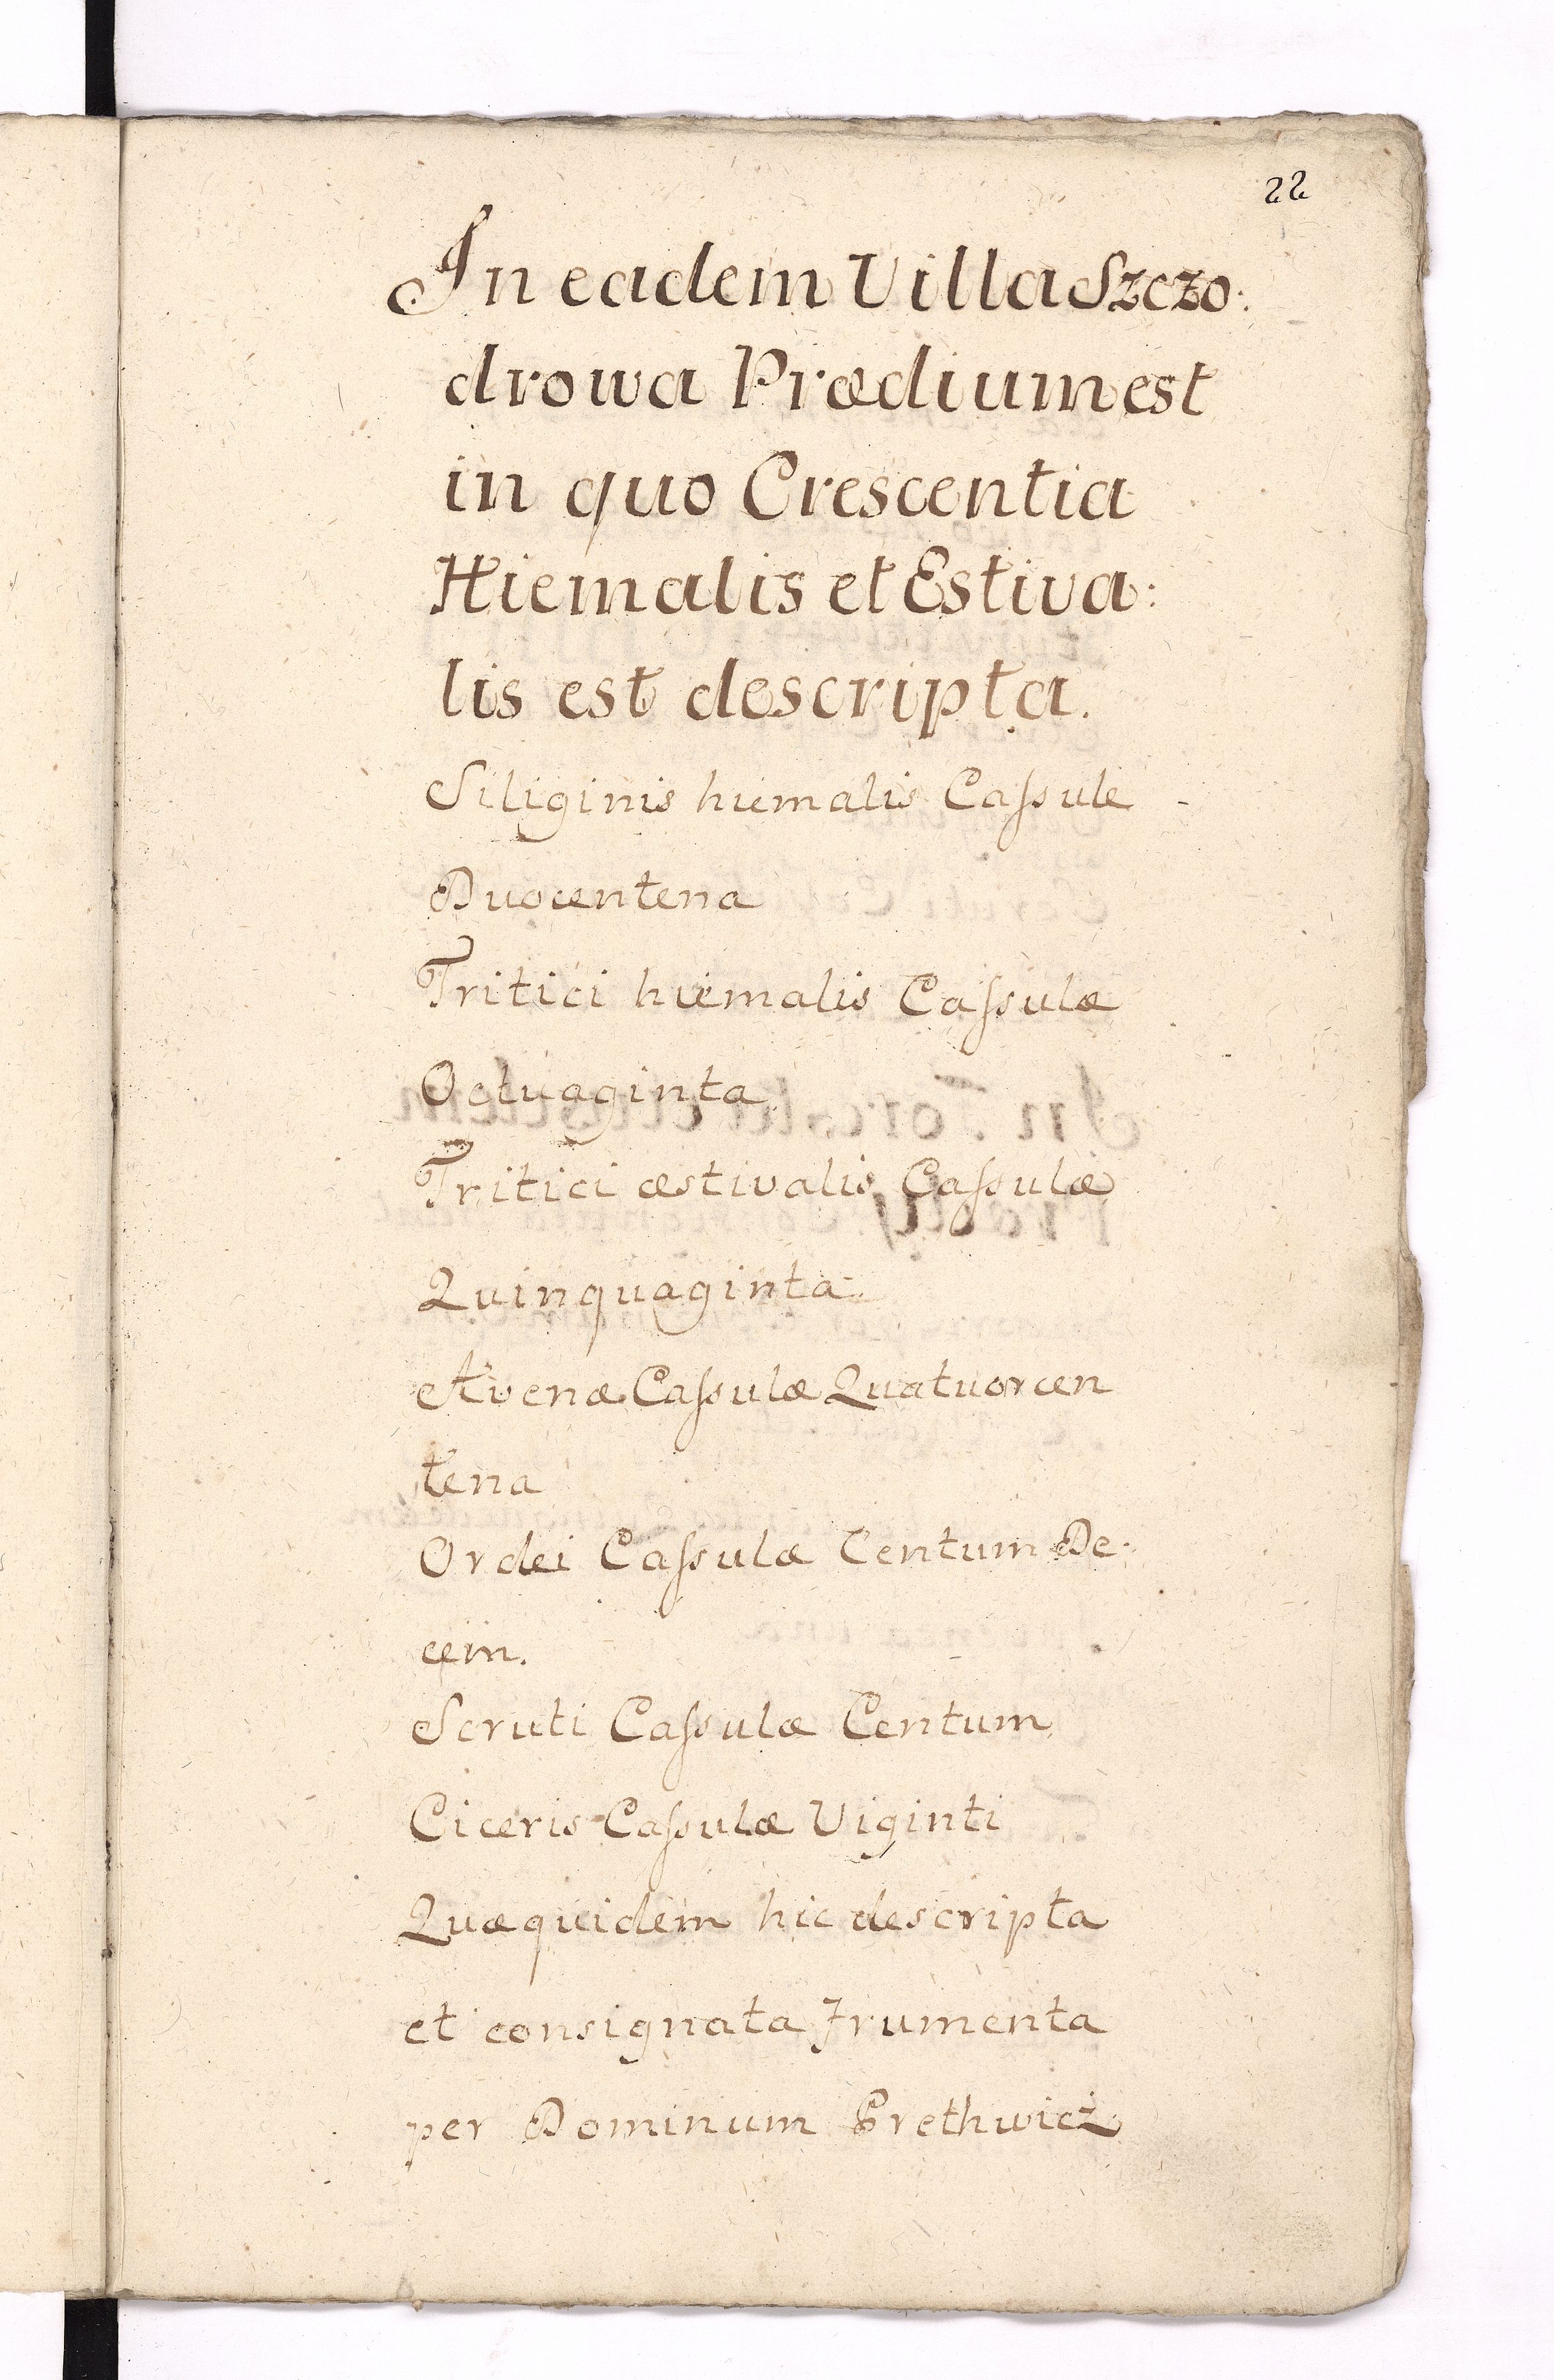 22
In eadem Villa Szczo:
drowa Prædium est
in quo Crescentia
Hiemalis et Estiva:
lis est descripta.
Siliginis hiemalis Caſsule -
Duocentena
Tritici hiemalis Caſsulæ
Octuaginta
Tritici æstivalis Caſsulæ
Quinquaginta
Avenæ Caſsulæ Quatuorcen
tena
Ordei Caſsulæ Centum De-
cem.
Scruti Caſsulæ Centum
Ciceris Caſsulæ Viginti
Quæquidem hic descripta
et consignata frumenta
per Dominum Prethwicz